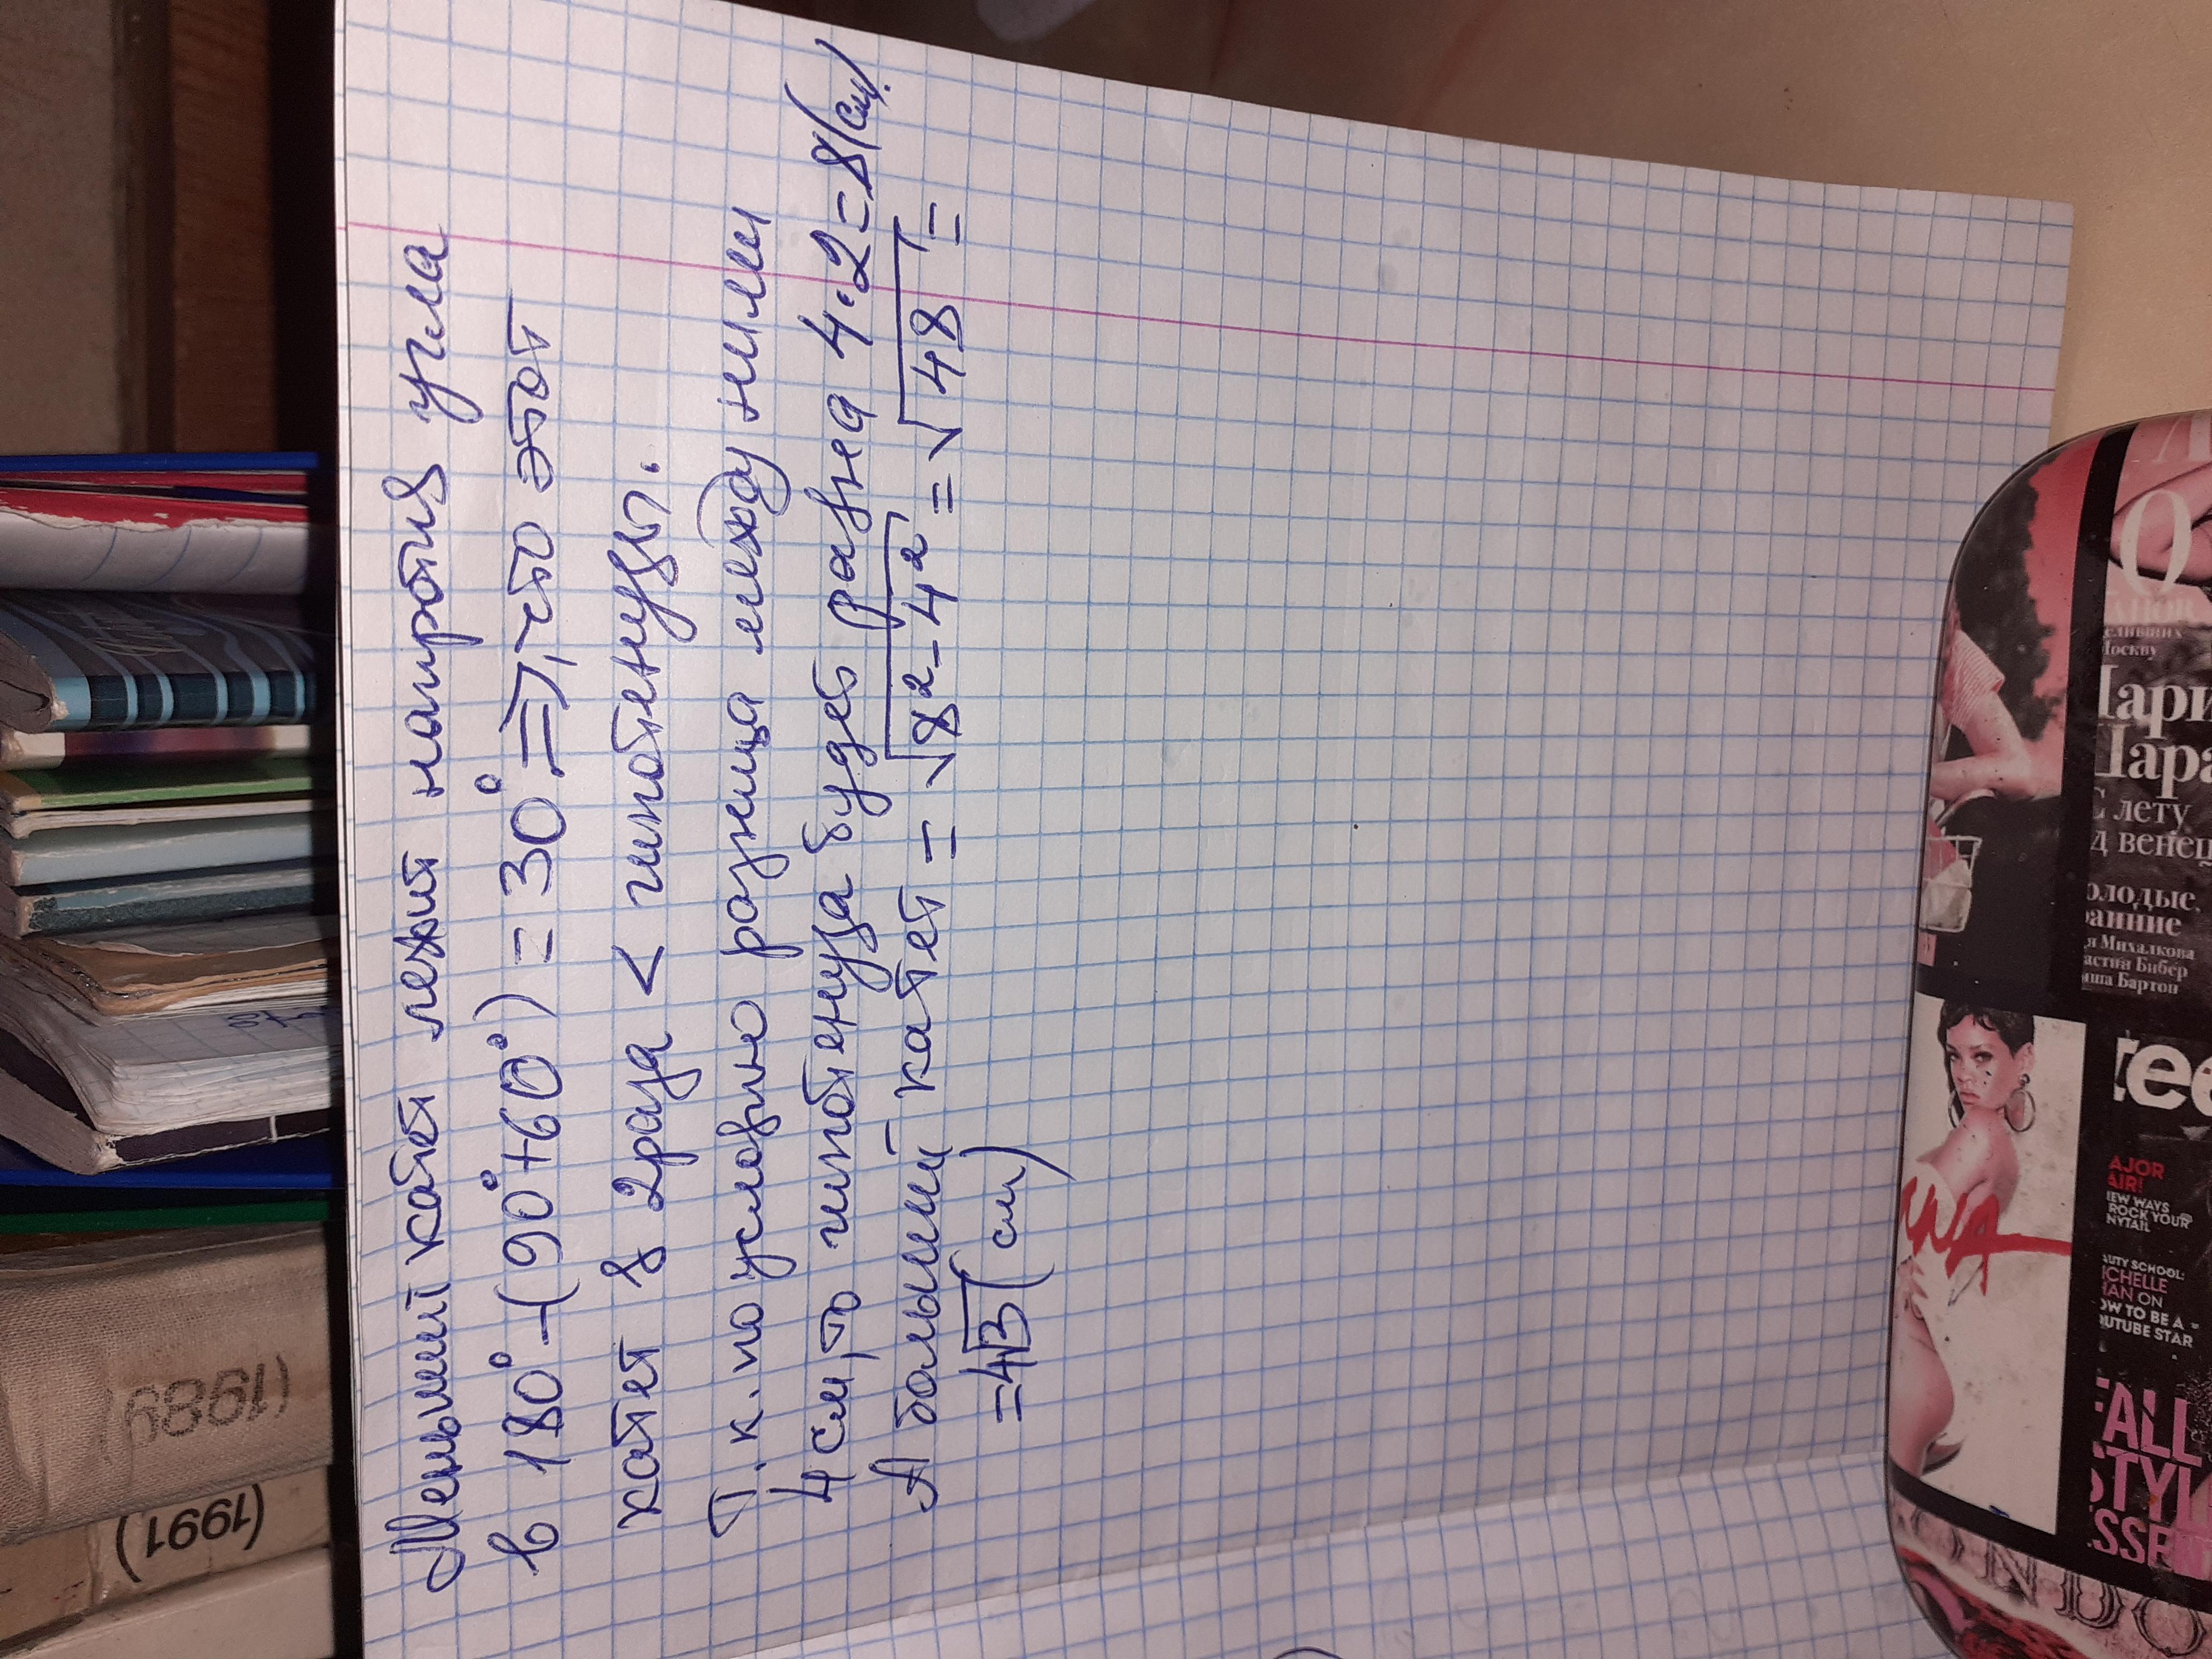 Меньший катет лежит напротив угла
в 180° - (90° + 60°) = 30° ⇒, что этот
катет в 2 раза < гипотенузы.
Т. к. по условию разница между ними
4 см, то гипотенуза будет равна 4·2=8(см).
А больший катет = √8²-4² = √48 =
=4√3 (см)
(1989)
(1991)
КИНОВ
Мари
Шара
С лету
олодые,
ранние
я Михалкова
астин Бибер
иша Бартон
Москву
tee
AJOR
AIR!
NEW WAYS
ROCK YOUR
NYTAIL
AUTY SCHOOL:
ICHELLE
HAN ON
OW TO BE A
OUTUBE STAR
FALL
STYL
SSEN